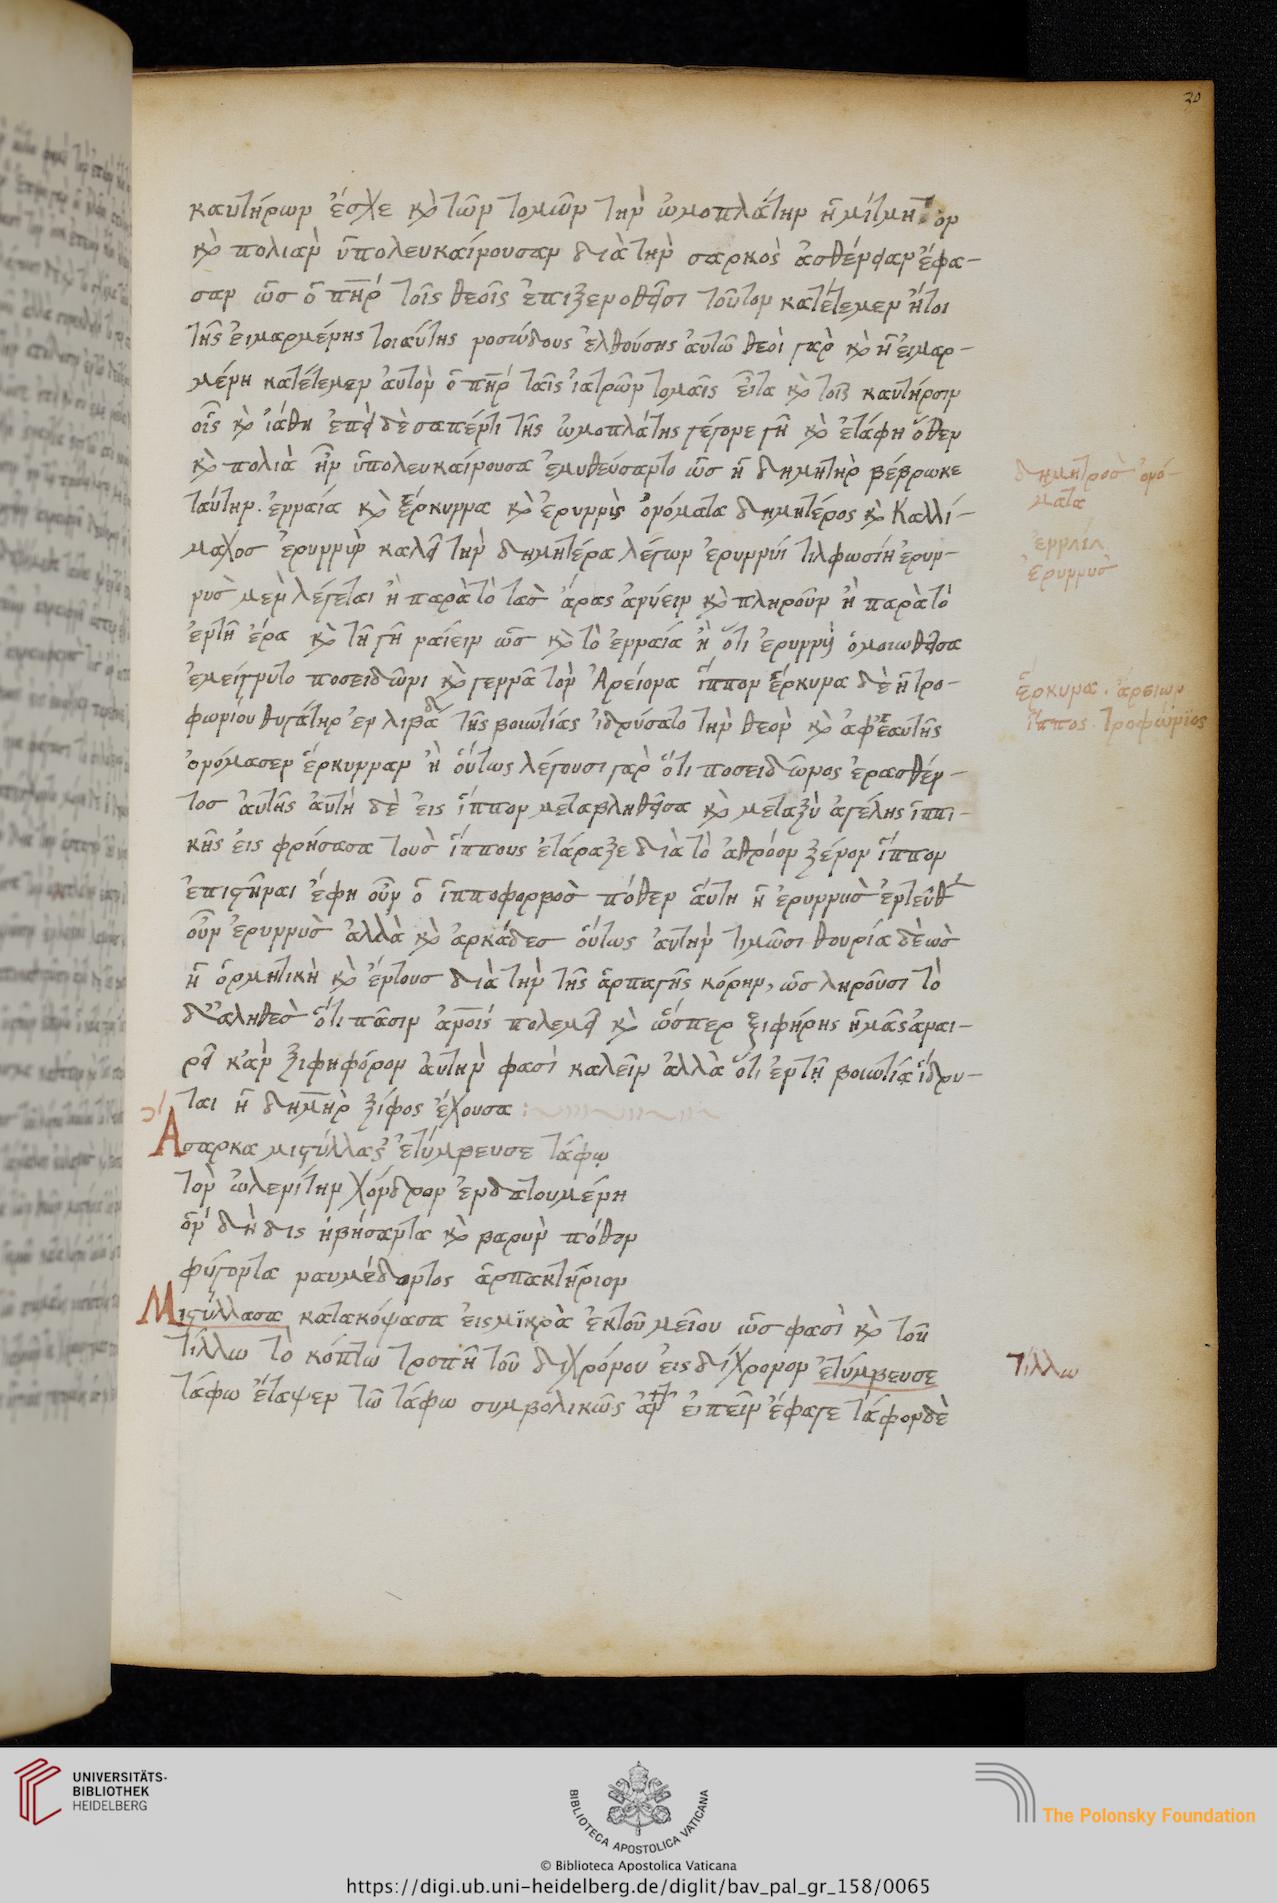 30
καυτήρων ἔσχε κ̀ τῶν τομῶν τὴν ὠμοπλάτην ἡμίτμητον
κ̀ πολιὰν ὑπολευκαίνουσαν διὰ τὴν σαρκὸς ἀσθένειαν ἔφα-
σαν ὡσ ὁ π̅η̅ρ̅ τοῖς θεοῖς ἐπιξενοθεῖσι τοῦτον κατέτεμεν ἤτοι
τῆς εἱμαρμένης τοιαύτης νοσώδους ἐλθούσης αὐτῶ θεοὶ γὰρ κ̀ ἡ εἱμαρ-
μένη κατέτεμεν αὐτὸν ὁ π̅η̅ρ̅ ταῖς ἰατρῶν τομαῖς εἶτα κ̀ τοῖς καυτῆρσιν
οἷς κ̀ ἰάθη ἐπεὶ δὲ σαπέντι τῆς ὠμοπλάτης γέγονε γῆ κ̀ ἐτάφη ὅθεν
κ̀ πολιὰ ἦν ὑπολευκαίνουσα ἐμυθεύσαντο ὡσ ἡ δημήτηρ βέβρωκε
ταύτην. ἐρραία κ̀ ἕρκυννα κ̀ ἐρυννὶς ὀνόματα δημητέρος κ̀ Καλλί-
μαχοσ ἐρυννὺν καλεῖ τὴν δημητέρα λέγων ἐρυννύϊ τιλφωσίη ἐρυν-
νὺσ μὲν λέγεται ἢ παρὰ τὸ τὰσ ἀρας ἀνύειν κ̀ πληροῦν ἢ παρὰ τὸ
ἐν τῆ ἔρα κ̀ τῆ γῆ ναίειν ὡσ κ̀ τὸ ἐνναία ἢ ὅτι ἐρυννύϊ ὁμοιωθεῖσα
ἐμείγνυτο ποσειδῶνι κ̀ γεννᾶ τὸν Ἀρείονα ἵππον ἕρκυνα δὲ ἡ τρο-
φωνίου θυγάτηρ ἐν λιβαδ τῆς βοιωτίας ἱδρύσατο τὴν θεὸν κ̀ ἀφ' ἑαυτῆς
ὀνόμασεν ἕρκυνναν ἢ οὕτως λέγουσι γὰρ ὅτι ποσειδῶνος ἐρασθέν-
τοσ αὐτῆς αὐτὴ δὲ εἰς ἵππον μεταβληθεῖσα κ̀ μεταξὺ ἀγέλης ἱππι-
κῆς εἰς φρήσασα τοὺσ ἵππους ἐτάραξε διὰ τὸ ἀθρόον ξένον ἵππον
ἐπιστῆναι ἔφη οὖν ὁ ἱπποφορβὸσ πόθεν αὕτη ἡ ἐρυννὺσ ἐντεῦθ
οὖν ἐρυννὺσ ἀλλὰ κ̀ ἀρκάδεσ οὕτως αὐτὴν τιμῶσι θουρία δὲ ὡσ
ἡ ὁρμητικὴ κ̀ ἔντουσ διὰ τὴν τῆς ἁρπαγῆς κόρην, ὡσ ληροῦσι τὸ
δ' ἀληθὲσ ὅτι πᾶσιν ἀ̅ν̅οις πολεμεῖ κ̀ ὥσπερ ξιφήρης ἡμᾶς ἀναι-
ρεῖ κἀν ξιφηφόρον αὐτὴν φασὶ καλεῖν ἀλλὰ ὅτι ἐν τῇ βοιωτία ἵδρυ-
ται ἡ δημ̅η̅ρ̅ ξίφος ἔχουσα :
Ἄσαρκα μιστύλλασ' ἐτύμβευσε τάφῳ
τὸν ὠλενίτην χόνδρον ἐνδατουμένη
ὃν δὴ δὶς ἡβήσαντα κ̀ βαρὺν πόθον
φυγόντα ναυμέδοντος ἁρπακτήριον
Μιστύλλασα κατακόψασα εἰς μϊκρὰ ἐκ τοῦ μεῖου ὡσ φασὶ κ̀ τοῦ
τίλλω τὸ κόπτω τροπῆ τοῦ διχρόνου εἰς δίχρονον ἐτύμβευσε
τάφω ἔταψεν τῶ τάφω συμβολικῶς ἀν εἰπεῖν ἔφαγε τάφον δὲ
δημητροσ ὀνό-
ματα
ἐρυννυσ
ἕρκυνα. ἀρειων
ἵππος. τροφώνϊος
τίλλω
UNIVERSITÄTS-
BIBLIOTHEK
HEIDELBERG
BIBLIOTECA APOSTOLICA VATICANA
© Biblioteca Apostolica Vaticana
The Polonsky Foundation
https://digi.ub.uni-heidelberg.de/diglit/bav_pal_gr_158/0065